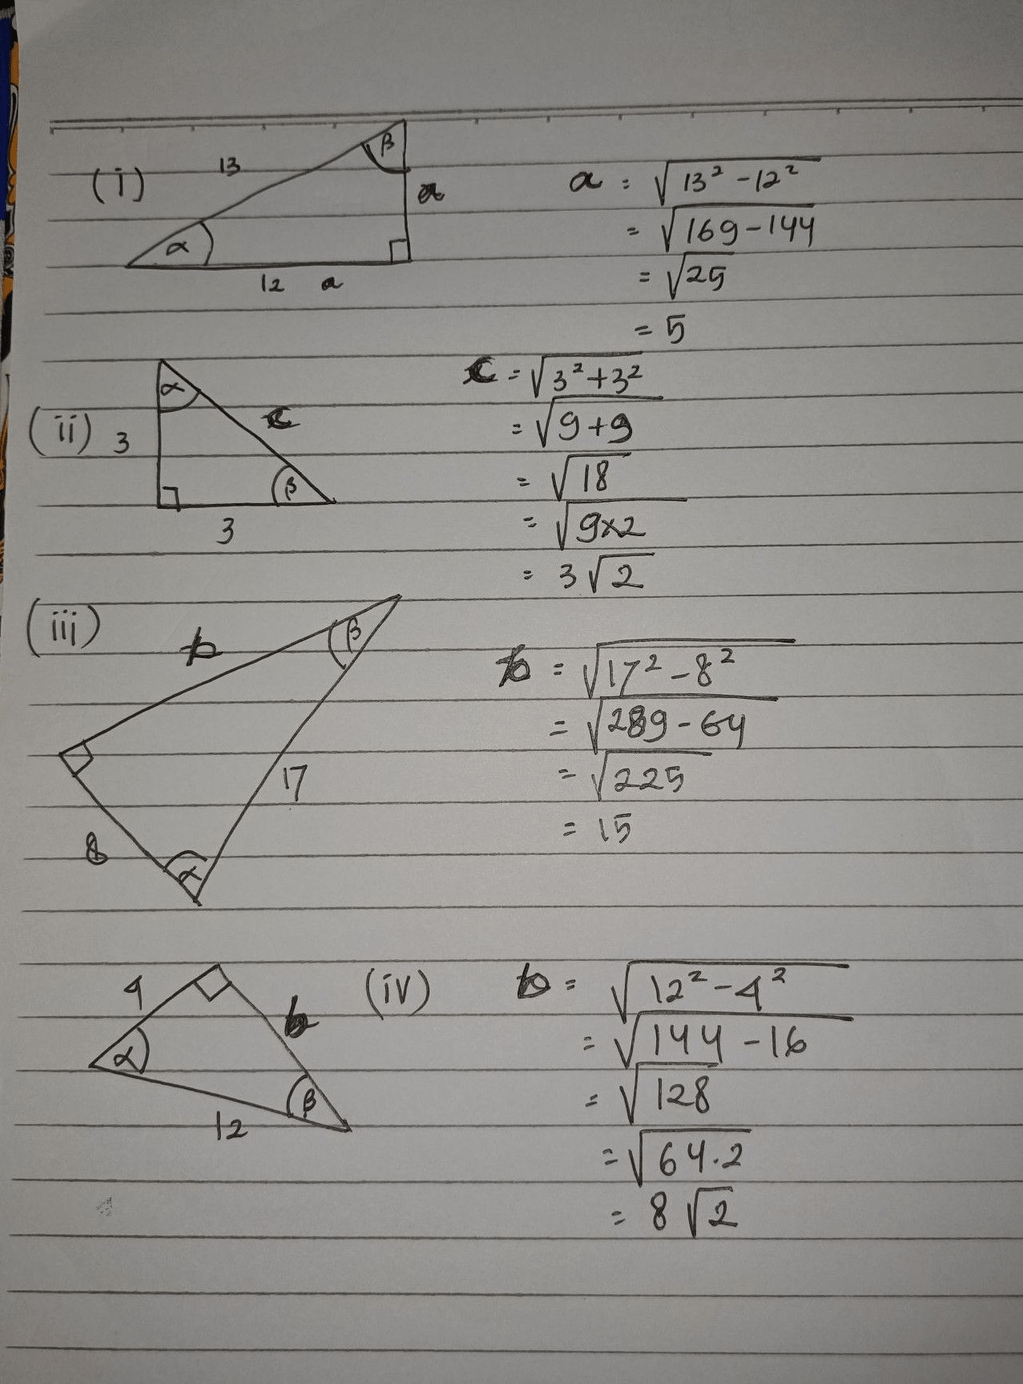 (i) 13 β a α 12 a
a = √13² - 12²
= √169 - 144
= √25
= 5
(ii) 3 α c β 3
c = √3² + 3²
= √9 + 9
= √18
= √9×2
= 3√2
(iii) b β 17 8 α
b = √17² - 8²
= √289 - 64
= √225
= 15
(iv) 4 b α β 12
b = √12² - 4²
= √144 - 16
= √128
= √64.2
= 8√2